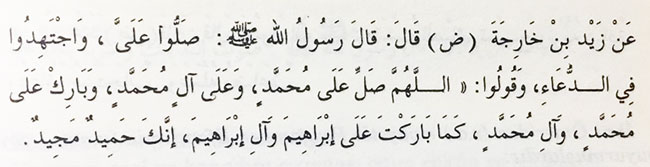 عَنْ زَيْدِ بِنْ خَارِجَةَ (ض) قَالَ: قَالَ رَسُولُ الله ﷺ: صَلُّوا عَلَىَّ ، وَاجْتَهِدُوا
فِي الـــدُّعَاءِ، وَقُولُوا: « اللَّـهُمَّ صَلِّ عَلَى مُحَمَّدٍ، وَعَلَى آلِ مُحَمَّدٍ، وَبَارِكْ عَلَى
مُحَمَّدٍ ، وَآلِ مُحَمَّدٍ ، كَمَا بَارَكْتَ عَلَى إِبْرَاهِيمَ وَآلِ إِبْرَاهِيمَ، إِنَّكَ حَمِيدٌ مَجِيدٌ.